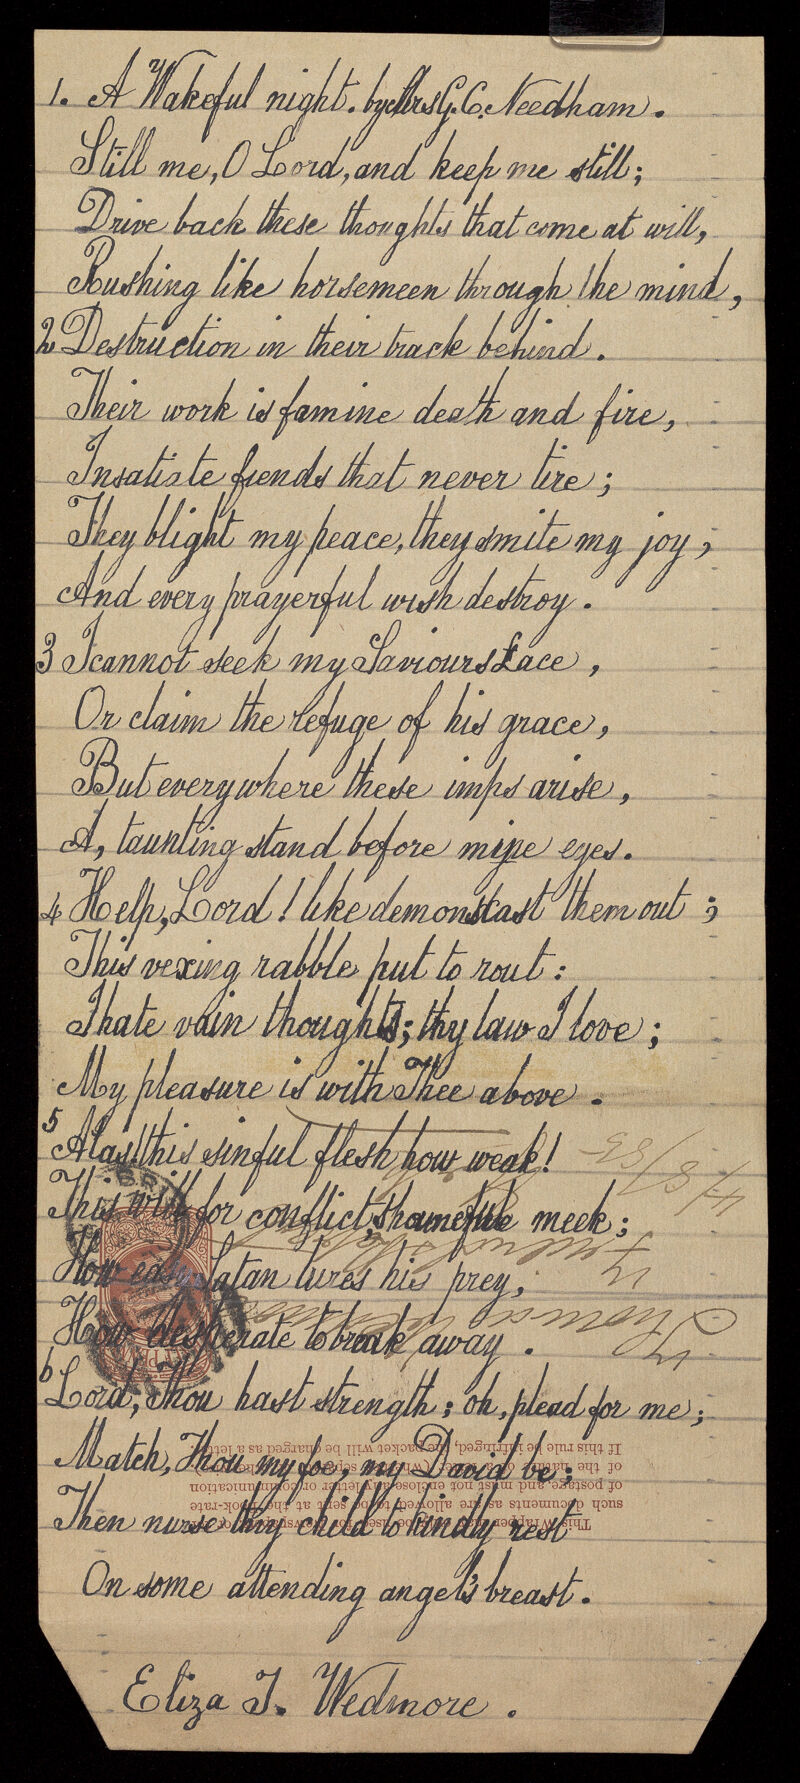 1. A Wakeful night. by Mrs G. C. Needham.
Still me, O Lord, and keep me still;
Drive back these thoughts that come at will,
Rushing like horsemeen through the mind,
2 Destruction in their track behind.
Their work is famine death and fire,
Insatiate fiends that never tire;
They blight my peace, they smite my joy,
And every prayerful wish destroy.
3 I cannot seek my Saviours face,
Or claim the refuge of his grace,
But everywhere these imps arise,
A, taunting stand before mine eyes.
4 Help, Lord! like demons cast them out;
This vexing rabble put to rout:
I hate vain thoughts; thy law I love;
My pleasure is with Thee above.
5 Alas! this sinful flesh how weak!
This will for conflict, shameful meek;
How easy Satan lures his prey,
How desperate to break away.
6 Lord, Thou hast strength; oh, plead for me;
Match, Thou my foe, my David be;
Then nurse thy child to kindly rest
On some attending angel's breast.
Eliza J. Wedmore.
This Wrapper may only be used for Newspapers, or for
such documents as are allowed to be sent at the Book-rate
of postage, and must not enclose any letter or communication
of the nature of a letter (whether separate or otherwise).
If this rule be infringed, the packet will be charged as a letter.